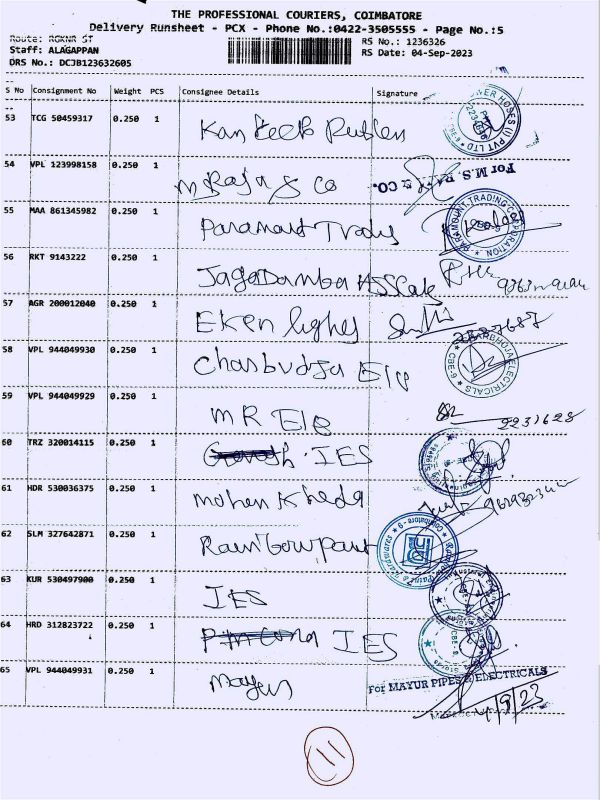 THE PROFESSIONAL COURIERS, COIMBATORE
Delivery Runsheet - PCX - Phone No.:0422-3505555 - Page No.:5
Route: RGKNR ST
RS No.: 1236326
Staff: ALAGAPPAN
RS Date: 04-Sep-2023
DRS No.: DCJB123632605
S No Consignment No Weight PCS Consignee Details Signature
53 TCG 50459317 0.250 1
54 VPL 123998158 0.250 1 M Raja & Co
For M.S. & CO.
55 MAA 861345982 0.250 1 Paramount Trady
PARAMOUNT TRADING CORPORATION
56 RKT 9143222 0.250 1 Jagadamba ASSoc
57 AGR 200012040 0.250 1 Eken lighes
2237687
58 VPL 944049930 0.250 1 Charbudja Ele
CHARBHOJA ELECTRICALS CBE-9
59 VPL 944049929 0.250 1 MR Ele
2231628
60 TRZ 320014115 0.250 1 IES
61 HDR 530036375 0.250 1 Mohen Kheda
62 SLM 327642871 0.250 1 Rainbow paint
63 KUR 530497900 0.250 1 IES
64 HRD 312823722 0.250 1 IES
65 VPL 944049931 0.250 1 Mayur
For MAYUR PIPES & ELECTRICALS
4/9/23
11